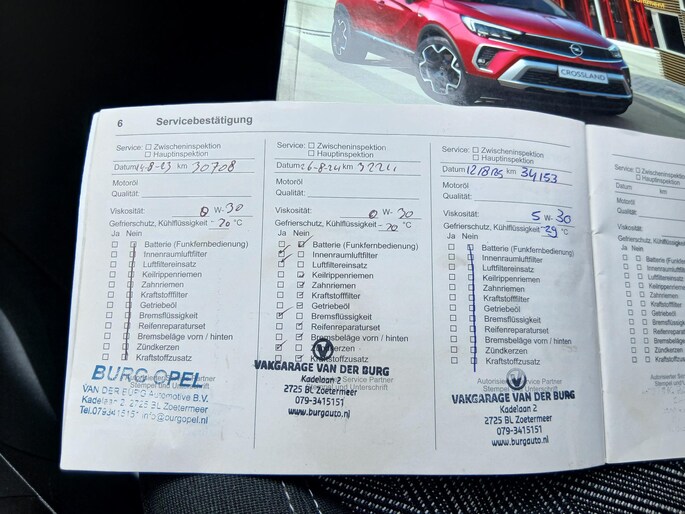 CROSSLAND
6 Servicebestätigung
Service: Zwischeninspektion
Hauptinspektion
Datum 14-8-23 km 30708
Motoröl
Qualität:
Viskosität: 0 W-30
Gefrierschutz, Kühlflüssigkeit - 20 °C
Ja Nein
Batterie (Funkfernbedienung)
Innenraumluftfilter
Luftfiltereinsatz
Keilrippenriemen
Zahnriemen
Kraftstofffilter
Getriebeöl
Bremsflüssigkeit
Reifenreparaturset
Bremsbeläge vorn / hinten
Zündkerzen
Kraftstoffzusatz
Autorisierter Service Partner
Stempel und Unterschrift
BURG OPEL
VAN DER BURG Automotive B.V.
Kadelaan 2 2725 BL Zoetermeer
Tel.0793415151 info@burgopel.nl
Service: Zwischeninspektion
Hauptinspektion
Datum 26-8-24 km
Motoröl
Qualität:
Viskosität: 0 W- 30
Gefrierschutz, Kühlflüssigkeit - 20 °C
Ja Nein
Batterie (Funkfernbedienung)
Innenraumluftfilter
Luftfiltereinsatz
Keilrippenriemen
Zahnriemen
Kraftstofffilter
Getriebeöl
Bremsflüssigkeit
Reifenreparaturset
Bremsbeläge vorn / hinten
Kraftstoffzusatz
Service Partner
VAKGARAGE VAN DER BURG
Kadelaan 2
2725 BL Zoetermeer
079-3415151
www.burgauto.nl
Service: Zwischeninspektion
Hauptinspektion
Datum km 34153
Motoröl
Qualität:
Viskosität: 5 W- 30
Gefrierschutz, Kühlflüssigkeit -29 °C
Ja Nein
Batterie (Funkfernbedienung)
Innenraumluftfilter
Luftfiltereinsatz
Keilrippenriemen
Zahnriemen
Kraftstofffilter
Getriebeöl
Bremsflüssigkeit
Reifenreparaturset
Bremsbeläge vorn / hinten
Zündkerzen
Kraftstoffzusatz
Autorisierter Service Partner
Stempel und Unterschrift
VAKGARAGE VAN DER BURG
Kadelaan 2
2725 BL Zoetermeer
079-3415151
www.burgauto.nl
Service: Zwischeninspektion
Hauptinspektion
Datum km
Motoröl
Qualität:
Viskosität:
Gefrierschutz, Kühlflüssig
Ja Nein
Batterie (Funkfern
Innenraumluftfilter
Luftfiltereinsatz
Keilrippenriemen
Zahnriemen
Kraftstofffilter
Getriebeöl
Bremsflüssigkeit
Reifenreparatur
Bremsbeläge vo
Zündkerzen
Kraftstoffzusatz